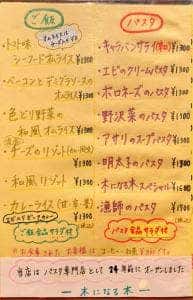 ご飯
オムライスは
スープ付です
・トマト味
シーフードオムライス
¥1300
・ベーコンとデミグラソースの
オムライス ¥1300
・色どり野菜の
和風オムライス
¥1300
・チーズのリゾット
・和風リゾット ¥1300
・カレーライス(甘・辛) ¥1300
ご飯食品サラダ付
パスタ
・キャラバンサライ(辛口) ¥1300
・エビのクリームパスタ ¥1300
・ボロネーズのパスタ ¥1300
・野沢菜のパスタ ¥1300
・アサリのスープパスタ ¥1300
・明太子のパスタ ¥1300
・木になる木スペシャル
・漁師のパスタ
パスタ食品サラダ付
当店はパスタ専門店として24年前にオープンしました
― 木になる木 ―